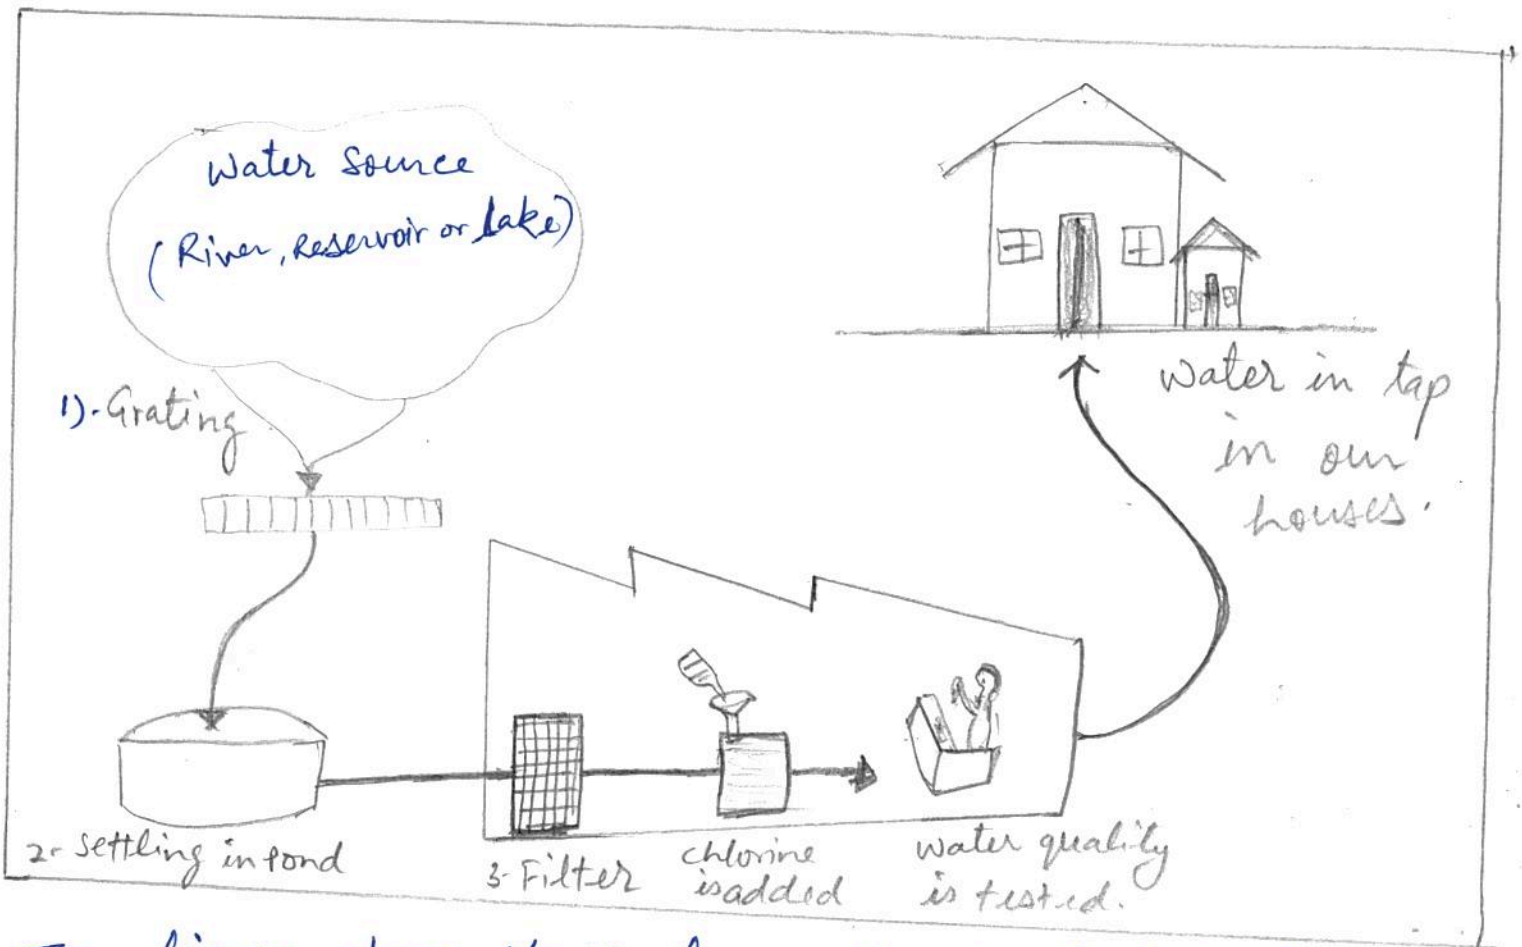 Water Source
(River, Reservoir or Lake)
1). Grating
Water in tap
in our
houses.
2- Settling in Pond
3- Filter
chlorine
is added
water quality
is tested.